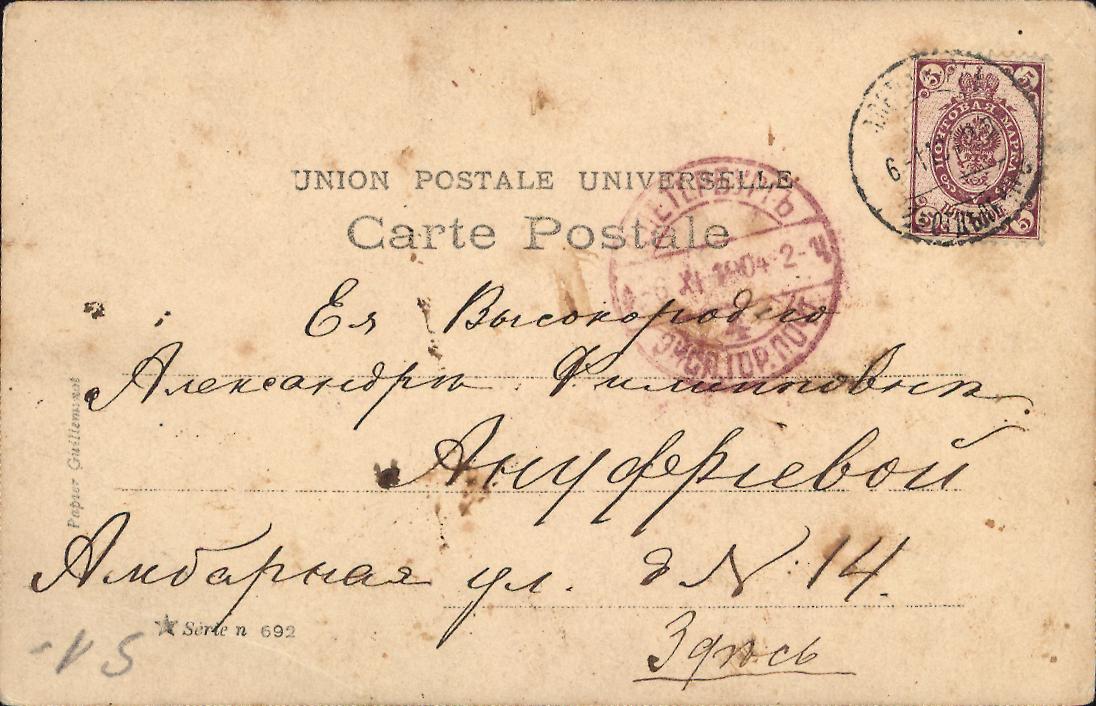 UNION POSTALE UNIVERSELLE
Carte Postale
5 5
ПОЧТОВАЯ МАРКА
5 5
6
XI 1904 2-Ч
4
ГОР. ПОЧ
Ея Высокородию
Александрѣ Филипповнѣ
Ануфріевой
Амбарная ул. д N. 14.
Здѣсь
Papier Guilleminot
Série n 692